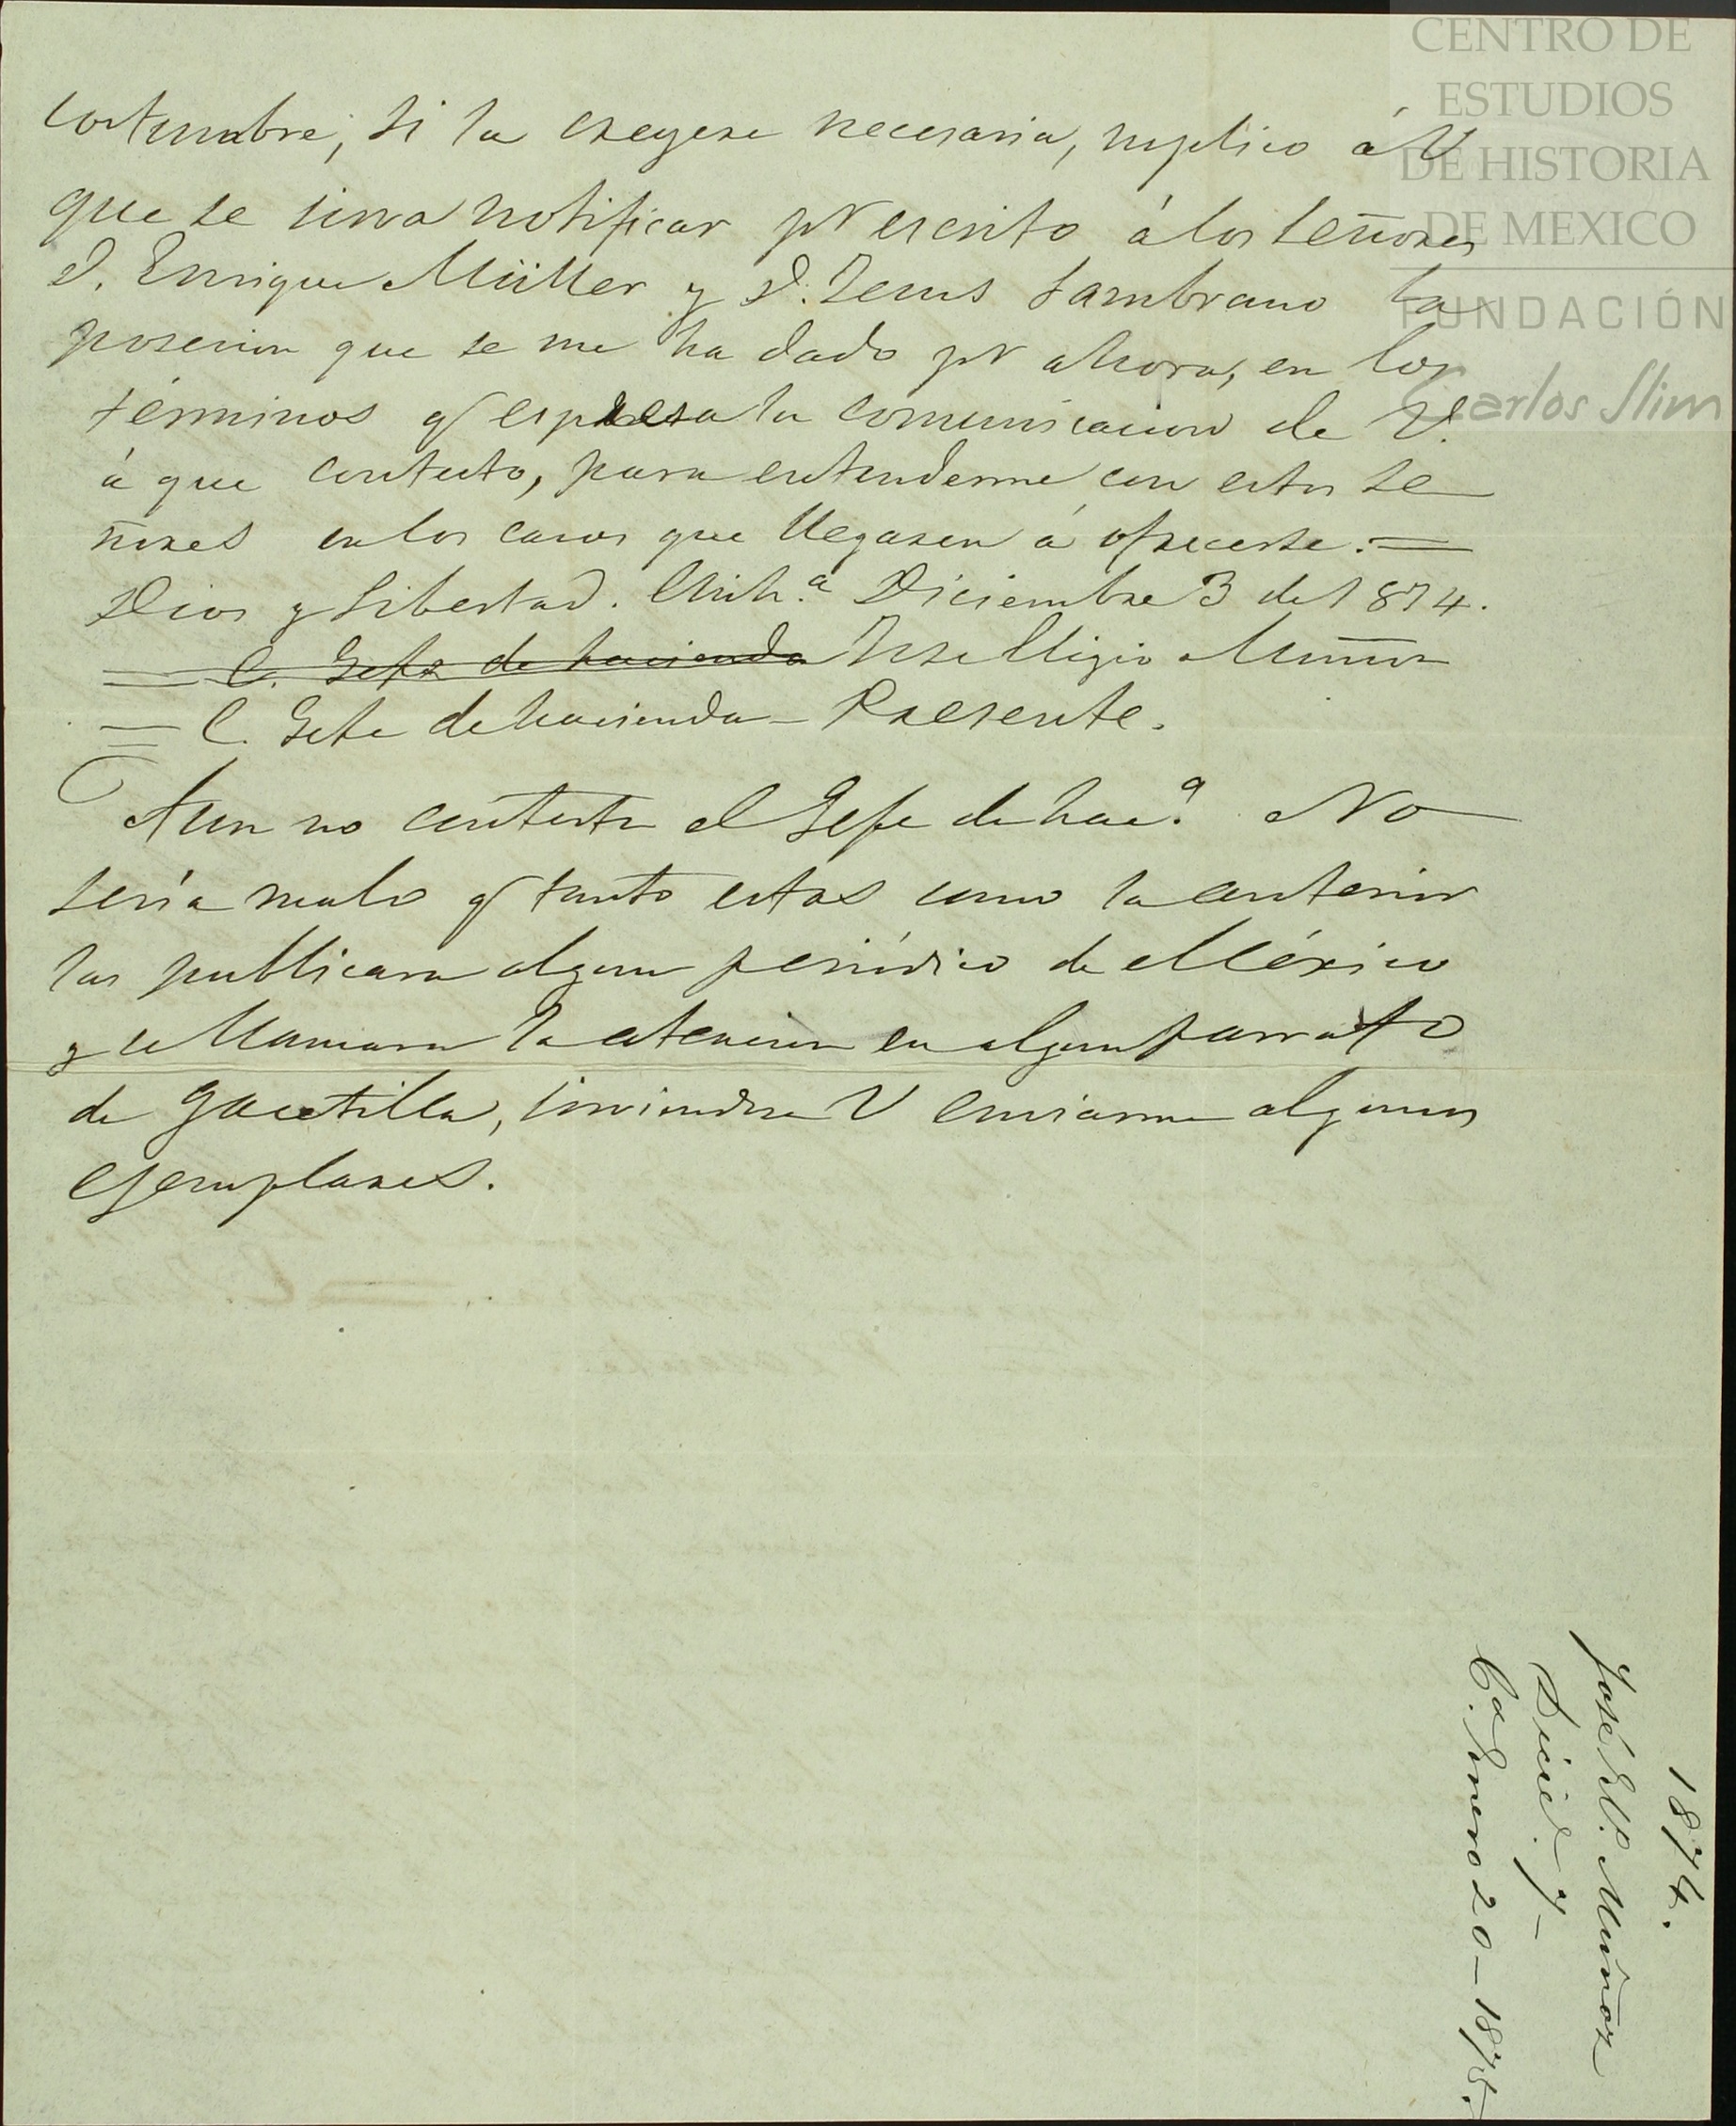 costumbre, si la creyere necesaria, suplico á V
que se sirva notificar pr escrito á los Señores
D. Enrique Müller y D. Jesus Zambrano la
posesion que se me ha dado pr ahora, en los
términos q espresa la comunicacion de V.
á que contesto, para entenderme con estos Se
ñores en los casos que llegasen á ofrecerse. =
Dios y Libertad. Chih.a Diciembre 3 de 1874.
= C. Gefe de hacienda José Eligio Muñoz
= C. Gefe de hacienda - Presente.
Aun no contesta el Gefe de hac.a No
sería malo q tanto estas como la anterior
las publicara algun periódico de México
y se llamara la atencion en algun parrafo
de gacetilla, sirviendose V enviarme algunos
ejemplares.
1874.
José El. Muñoz
Dicie. 7-
C.a Enero 20-1875.
CENTRO DE
ESTUDIOS
DE HISTORIA
DE MEXICO
FUNDACIÓN
Carlos Slim